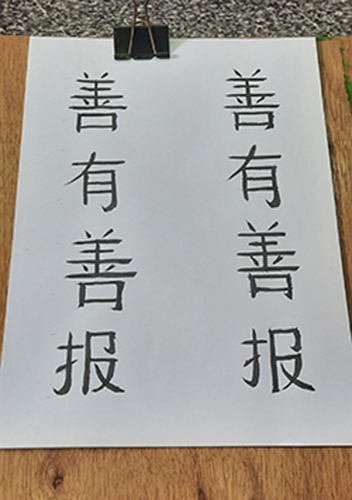 善有善报
善有善报